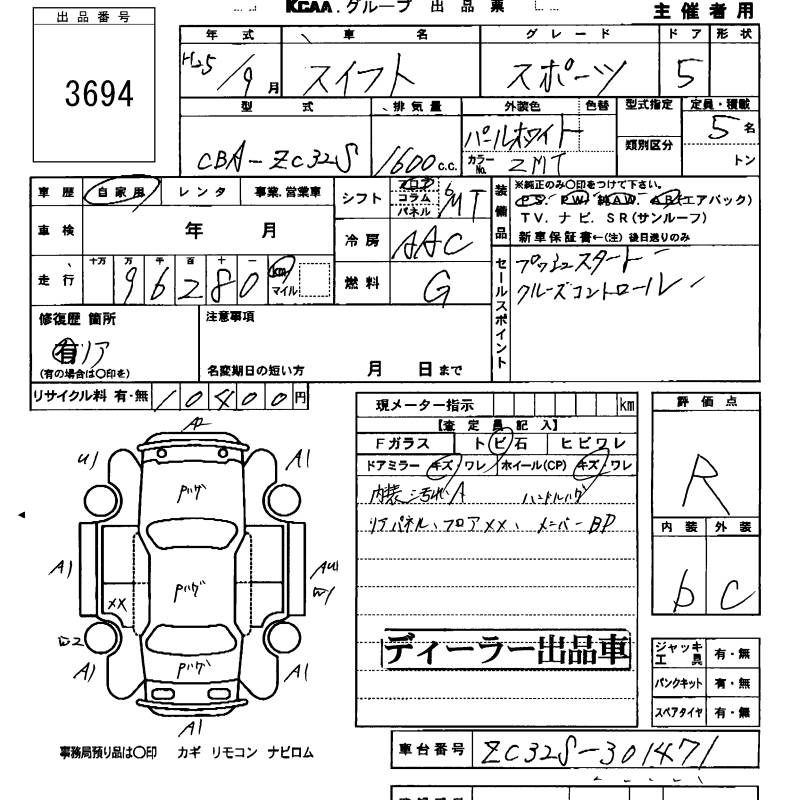 KCAA.グループ 出品票
主催者用
出品番号
3694
年式 車名 グレード ドア 形状
H25/9月 スイフト スポーツ 5
型式 排気量 外装色 色替 型式指定 定員・積載
CBA-ZC32S 1600c.c. パールホワイト 類別区分 5名
カラーNo. ZMT トン
車歴 自家用 レンタ 事業.営業車 シフト フロア コラム パネル 6 MT
装備品 ※純正のみ〇印をつけて下さい。
PS. PW. 純AW. AB(エアバック)
TV. ナビ. SR(サンルーフ)
新車保証書←(注)後日送りのみ
車検 年 月 冷房 AAC
走行 十万 万 千 百 十 一
96280 km マイル 燃料 G
セールスポイント プッシュスタート
クルーズコントロール
修復歴 箇所 注意事項
有 リア
(有の場合は〇印を) 名変期日の短い方 月 日まで
リサイクル料 有・無 10400円
現メーター指示 km
【査定員記入】
Fガラス トビ石 ヒビワレ
ドアミラー キズ・ワレ ホイール(CP) キズ・ワレ
内装汚れA ハンドルハゲ
リアパネル、フロアXX、メンバーBP
ディーラー出品車
評価点
R
内装 外装
D C
A2
U1 A1
Pハゲ
A1 Pハゲ AU1
XX
A1 Pハゲ A1
A1
ジャッキ工具 有・無
パンクキット 有・無
スペアタイヤ 有・無
事務局預り品は〇印 カギ リモコン ナビロム
車台番号 ZC32S-301471